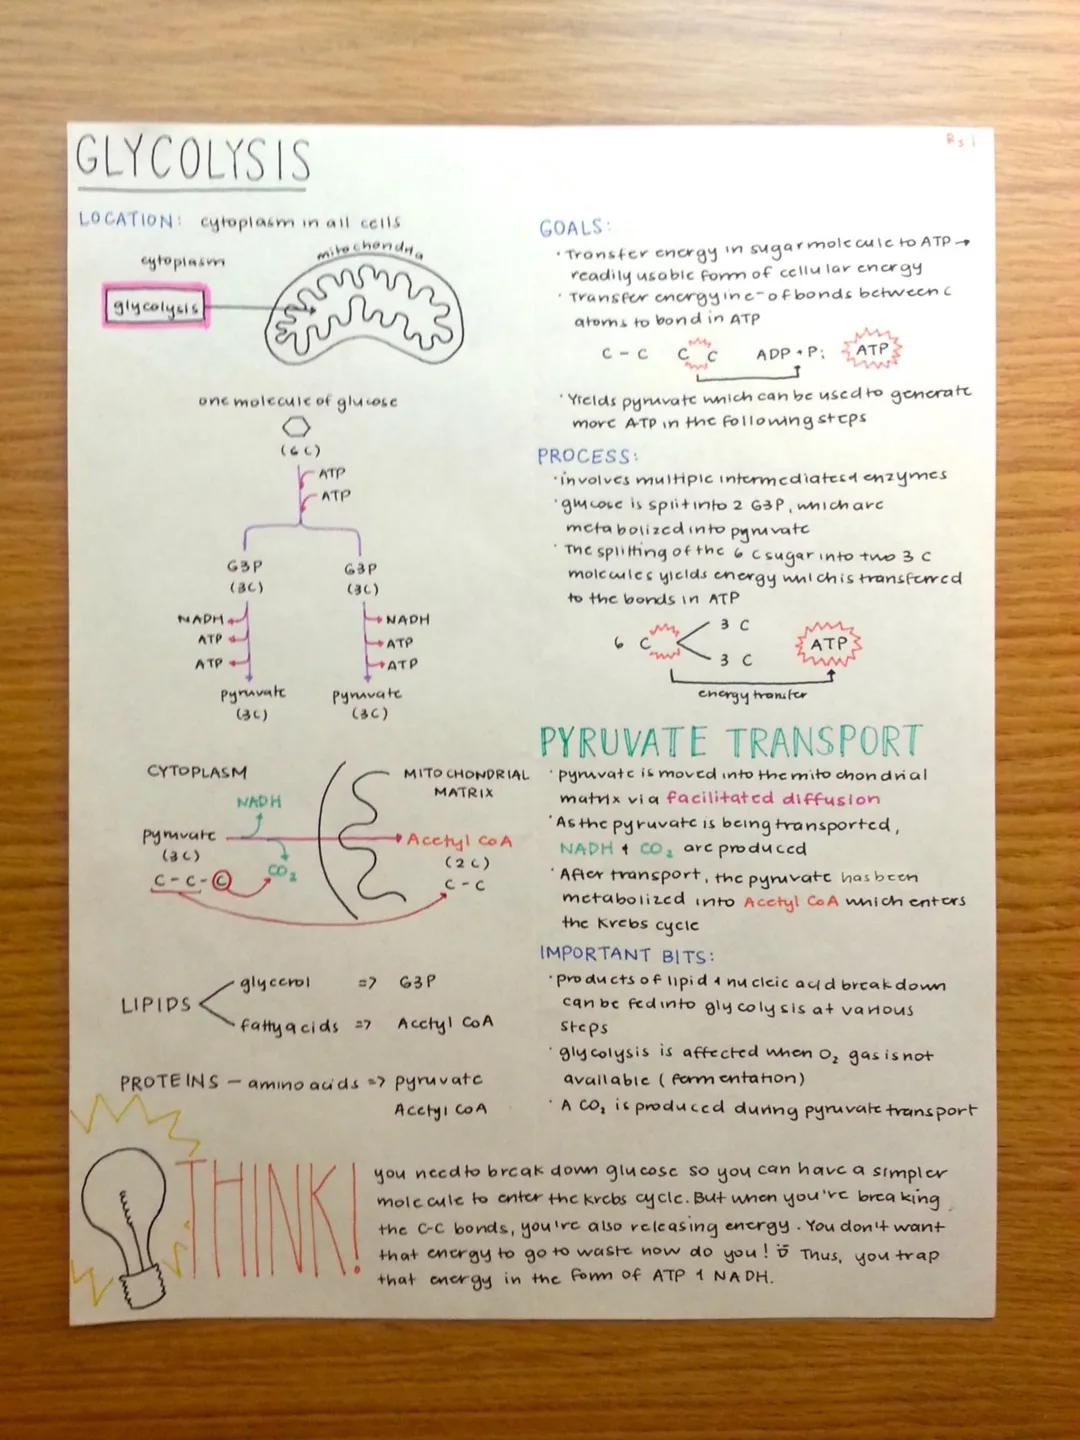 GLYCOLYSIS
LOCATION: cytoplasm in all cells
cytoplasm
mitochondria
glycolysis
one molecule of glucose
(6C)
ATP
ATP
G3P G3P
(3C) (3C)
NADH NADH
ATP ATP
ATP ATP
pyruvate pyruvate
(3C) (3C)
CYTOPLASM MITOCHONDRIAL
MATRIX
NADH
pyruvate Acetyl CoA
(3C) (2C)
CO₂
C-C-C C-C
LIPIDS
glycerol => G3P
fatty acids => Acetyl CoA
PROTEINS - amino acids => pyruvate
Acetyl CoA
GOALS:
· Transfer energy in sugar molecule to ATP →
readily usable form of cellular energy
· Transfer energy in e- of bonds between C
atoms to bond in ATP
C-C C C ADP + Pi ATP
· Yields pyruvate which can be used to generate
more ATP in the following steps
PROCESS:
· involves multiple intermediates & enzymes
· glucose is split into 2 G3P, which are
metabolized into pyruvate
· The splitting of the 6 C sugar into two 3 C
molecules yields energy which is transferred
to the bonds in ATP
3 C
6 C ATP
3 C
energy transfer
PYRUVATE TRANSPORT
· pyruvate is moved into the mitochondrial
matrix via facilitated diffusion
· As the pyruvate is being transported,
NADH & CO₂ are produced
· After transport, the pyruvate has been
metabolized into Acetyl CoA which enters
the Krebs cycle
IMPORTANT BITS:
· products of lipid & nucleic acid breakdown
can be fed into glycolysis at various
steps
· glycolysis is affected when O₂ gas is not
available (fermentation)
· A CO₂ is produced during pyruvate transport
THINK!
you need to break down glucose so you can have a simpler
molecule to enter the krebs cycle. But when you're breaking
the C-C bonds, you're also releasing energy. You don't want
that energy to go to waste now do you! Thus, you trap
that energy in the form of ATP & NADH.